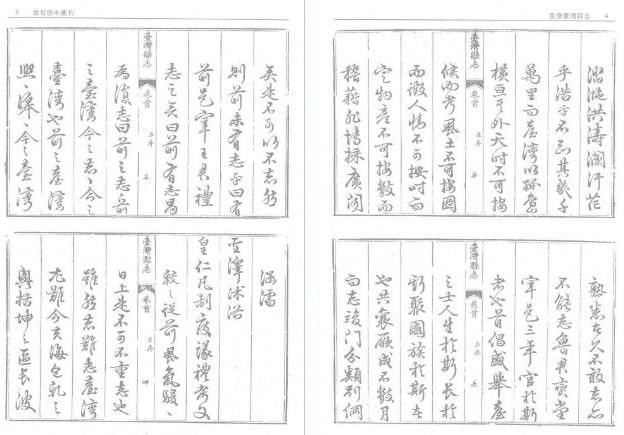 3 故宮珍本叢刊
矣是不可以不志然
則前未有志乎曰有
前邑宰王君禮
志之矣曰前有志曷
臺灣縣志 卷首 五序 三
為復志曰前之志前
之臺灣今之志今之
臺灣也前之臺灣
今之臺灣
涵濡
聖澤沐浴
皇仁凡制度 禮考文
從前風氣駸駸
臺灣縣志 卷首 五序 四
日上是不可不重志也
雖然志難志臺灣
尤難今夫海包乳之
輿括坤之區長波
重修臺灣縣志 4
洪濤瀾汗茫
乎浩乎不知其幾千
萬里而臺灣以孤島
橫亘其外天時不可按
臺灣縣志 卷首 五序
候而考風土不可按圖
而徵人情不可按時而
定物產不可按數而
稽藉非博採廣詢
熟悉者久不敢志亦
不能志魯君
宰邑三年官於斯
者也首倡盛舉臺
之士人生於斯長於
斯聚國族於斯者
也共襄厥成不數月
而志竣門分類別綱
臺灣縣志 卷首 五序